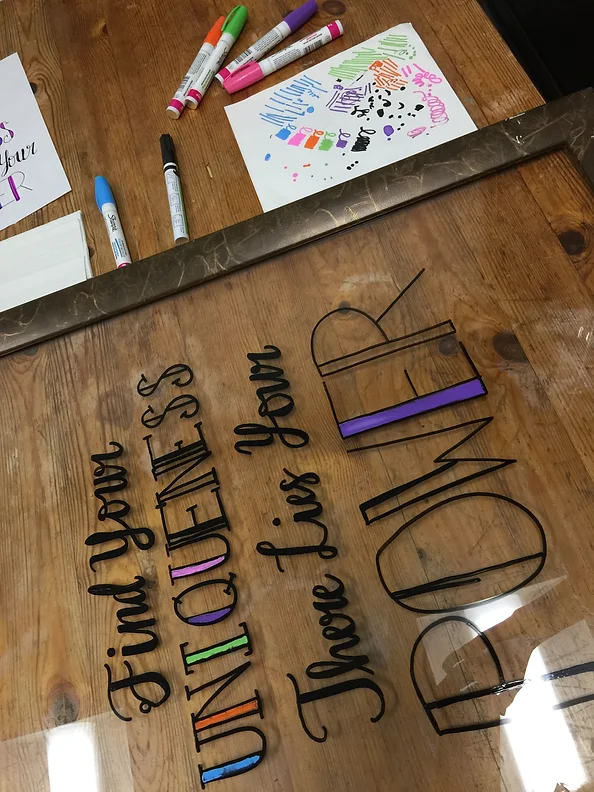 Find Your
UNIQUENESS
There Lies Your
POWER
Your
ER
Sharpie